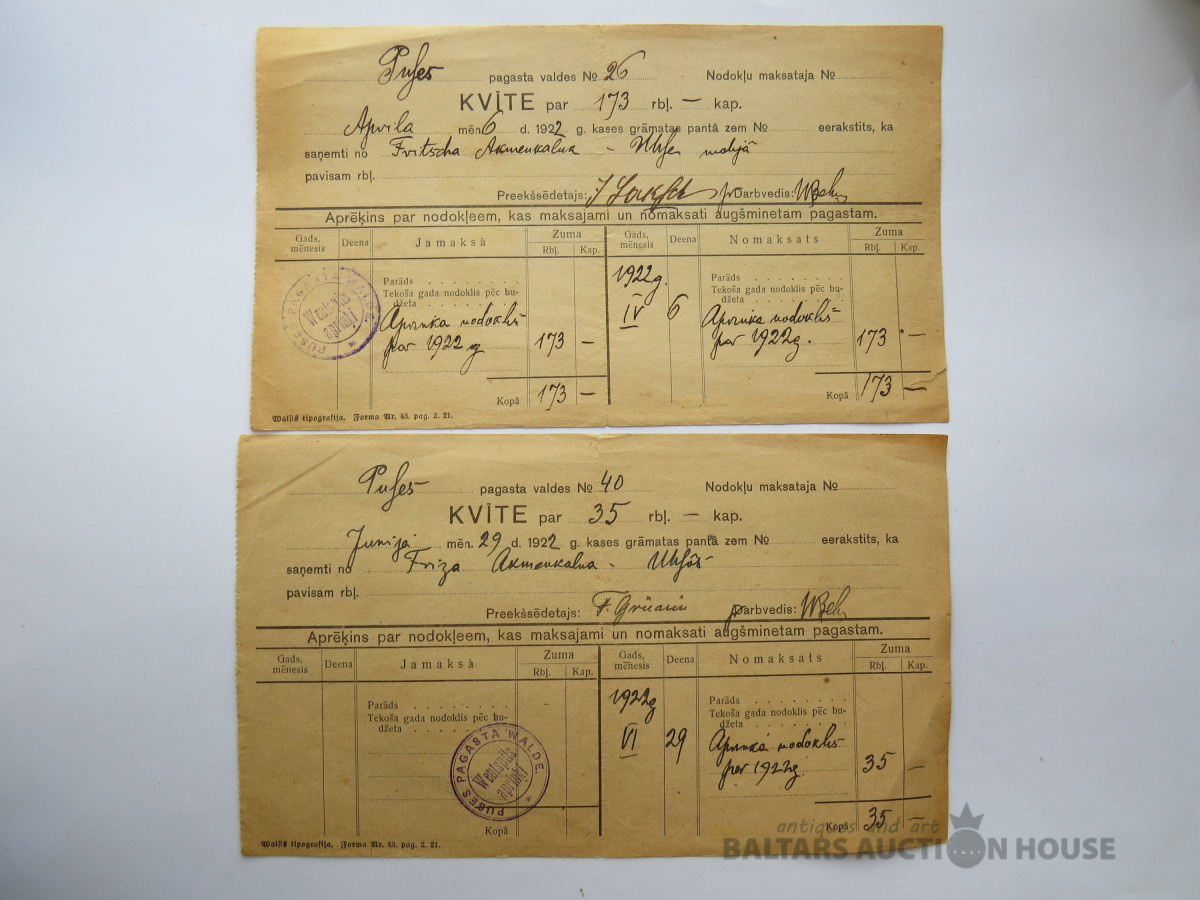 Puses pagasta valdes № 26 Nodokļu maksataja №
KVĪTE par 173 rbļ. — kap.
Aprila mēn 6 d. 1922 g. kases grāmatas pantā zem № eerakstits, ka
saņemti no Fritscha Akmenkalna -
pavisam rbļ.
Preekšsēdetajs: Darbvedis:
Aprēķins par nodokļeem, kas maksajami un nomaksati augšminetam pagastam.
Gads, mēnesis Deena Jamaksā Zuma Gads, mēnesis Deena Nomaksats Zuma
Rbļ. Kap. Rbļ. Kap.
1922 g.
Parāds Parāds
Tekoša gada nodoklis pēc bu- Tekoša gada nodoklis pēc bu-
džeta IV 6 džeta
Aprinķa nodoklis Aprinķa nodoklis
par 1922 g 173 — par 1922 g. 173 —
PUSES PAGASTA WALDE
Wentspils apriņķi
173 — 173 —
Kopā Kopā
Walsts tipografija. Forma Nr. 43. pag. 2. 21.
Puses pagasta valdes № 40 Nodokļu maksataja №
KVĪTE par 35 rbļ. — kap.
Junija mēn. 29 d. 1922 g. kases grāmatas pantā zem № eerakstits, ka
saņemti no Friza Akmenkalna -
pavisam rbļ.
Preekšsēdetajs: Darbvedis:
Aprēķins par nodokļeem, kas maksajami un nomaksati augšminetam pagastam.
Gads, mēnesis Deena Jamaksā Zuma Gads, mēnesis Deena Nomaksats Zuma
Rbļ. Kap. Rbļ. Kap.
1922 g
Parāds Parāds
Tekoša gada nodoklis pēc bu- Tekoša gada nodoklis pēc bu-
džeta džeta
VI 29 Aprinķa nodoklis
par 1922 g. 35 —
PUSES PAGASTA WALDE.
Wentspils apriņķi
Kopā Kopā 35 —
Walsts tipografija. Forma Nr. 43. pag. 2. 21.
antiques and art
BALTARS AUCTION HOUSE